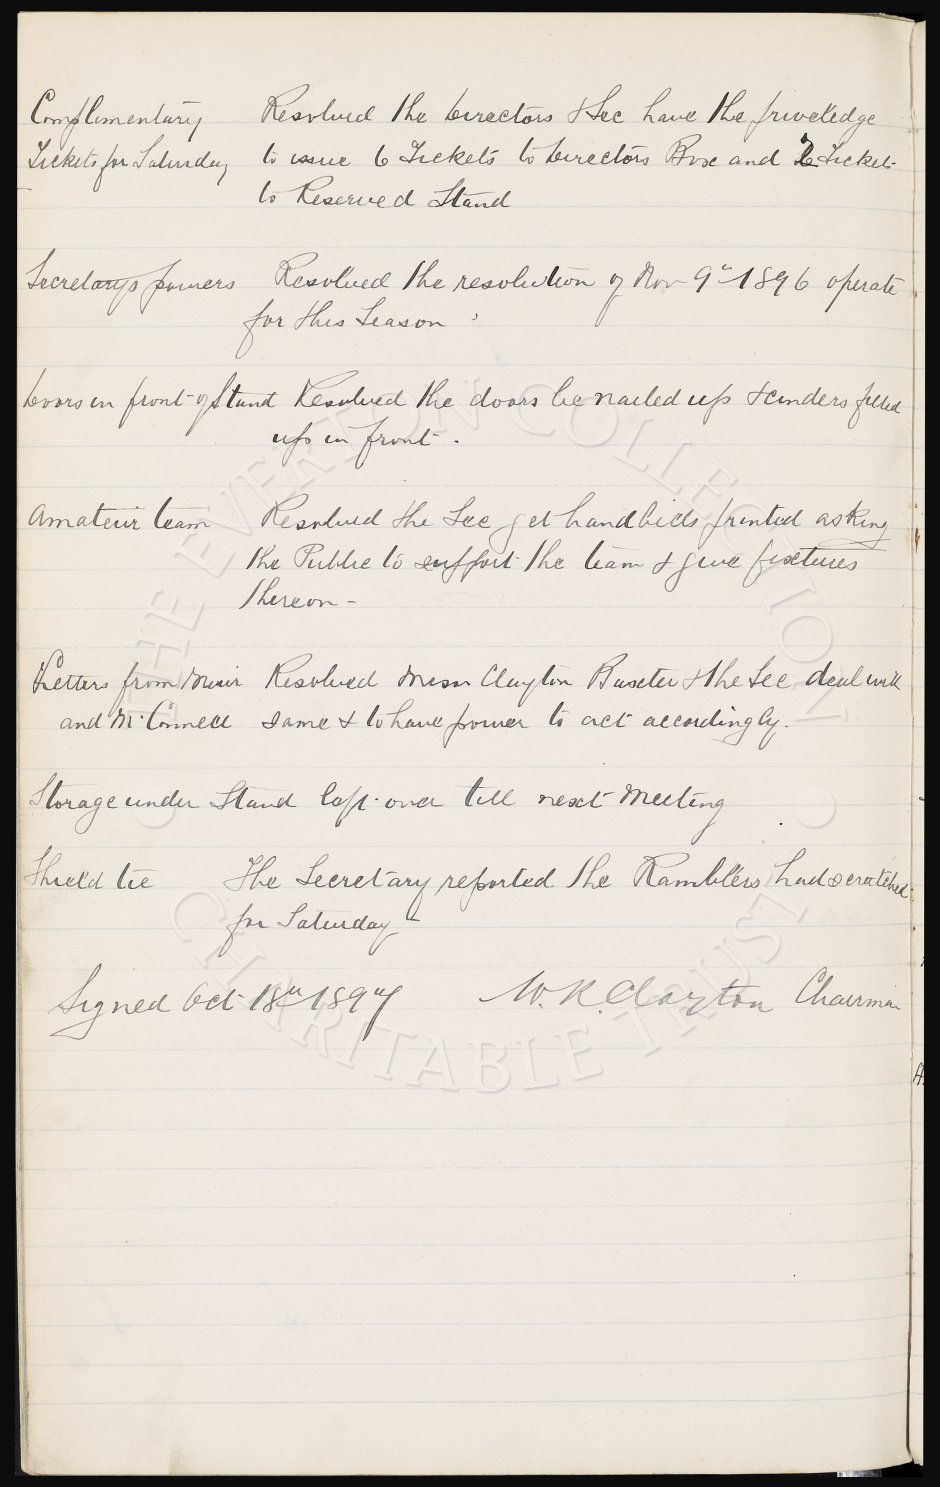 Complimentary Resolved the Directors & Sec have the priveledge
Tickets for Saturday to issue 6 Tickets to Directors Box and 6 Tickets
to Reserved Stand
Secretarys powers Resolved the resolution of Nov 9th 1896 operate
for this Season
Doors in front of Stand Resolved the doors be nailed up & cinders filled
up in front.
Amateur team Resolved the Sec get handbills printed asking
the Public to support the team & give fixtures
thereon -
Letters from Muir Resolved Messrs Clayton Baxter & the Sec deal with
and McConnell same & to have power to act accordingly.
Storage under Stand left over till next Meeting
Shield tie The Secretary reported the Ramblers had scratched
for Saturday -
Signed Oct 18th 1897 W. R. Clayton Chairman
THE EVERTON COLLECTION
CHARITABLE TRUST